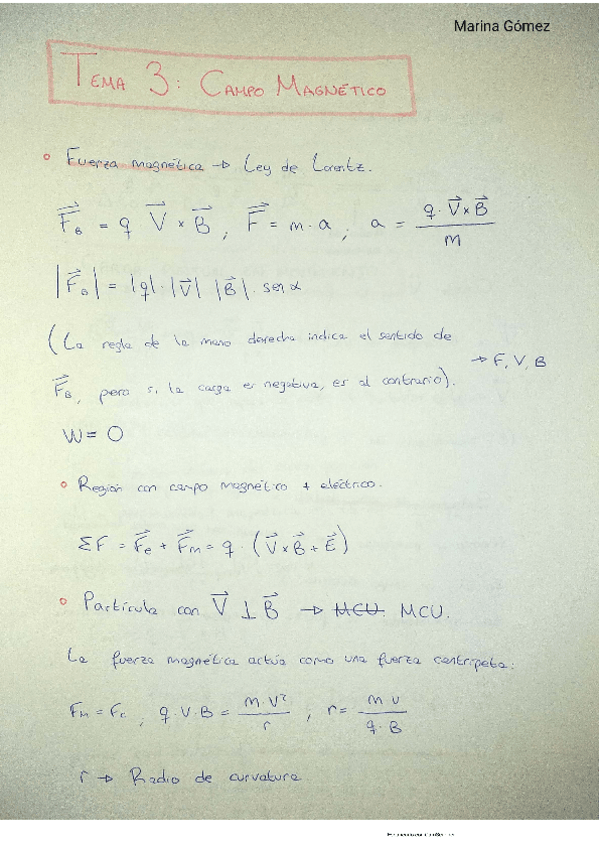 Marina Gómez
TEMA 3: CAMPO MAGNÉTICO
Fuerza magnética → Ley de Lorentz.
F⃗_B = q V⃗ × B⃗, F⃗ = m · a ; a = q · V⃗×B⃗ / m
|F⃗_B| = |q| · |V⃗| |B⃗| · sen α
(La regla de la mano derecha indica el sentido de
F⃗_B, pero si la carga es negativa, es al contrario). → F, V, B
W = 0
Región con campo magnético + eléctrico.
ΣF = F⃗_e + F⃗_m = q · (V⃗×B⃗ + E⃗)
Partícula con V⃗ ⊥ B⃗ → MCU. MCU.
La fuerza magnética actúa como una fuerza centrípeta:
F_m = F_c ; q · V · B = m · V² / r ; r = m · v / q · B
r → Radio de curvatura